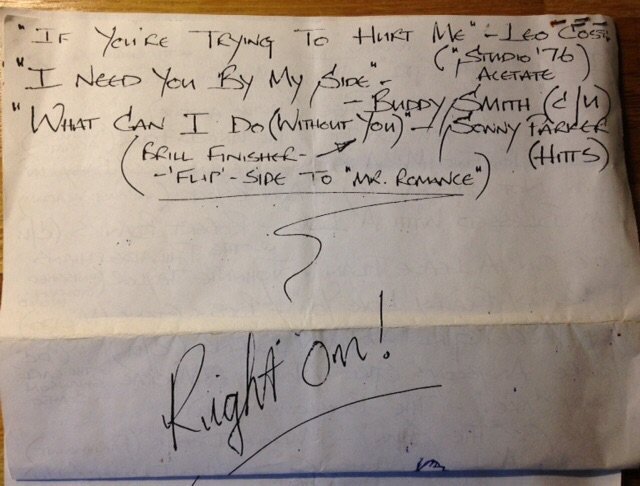 "IF YOU'RE TRYING TO HURT ME" - LEO COST
("STUDIO '76
ACETATE)
"I NEED YOU BY MY SIDE" -
- BUDDY SMITH (C/U)
"WHAT CAN I DO (WITHOUT YOU)" - SONNY PARKER
(HITTS)
(BRILL FINISHER -
- 'FLIP' - SIDE TO "MR. ROMANCE")
Right On!